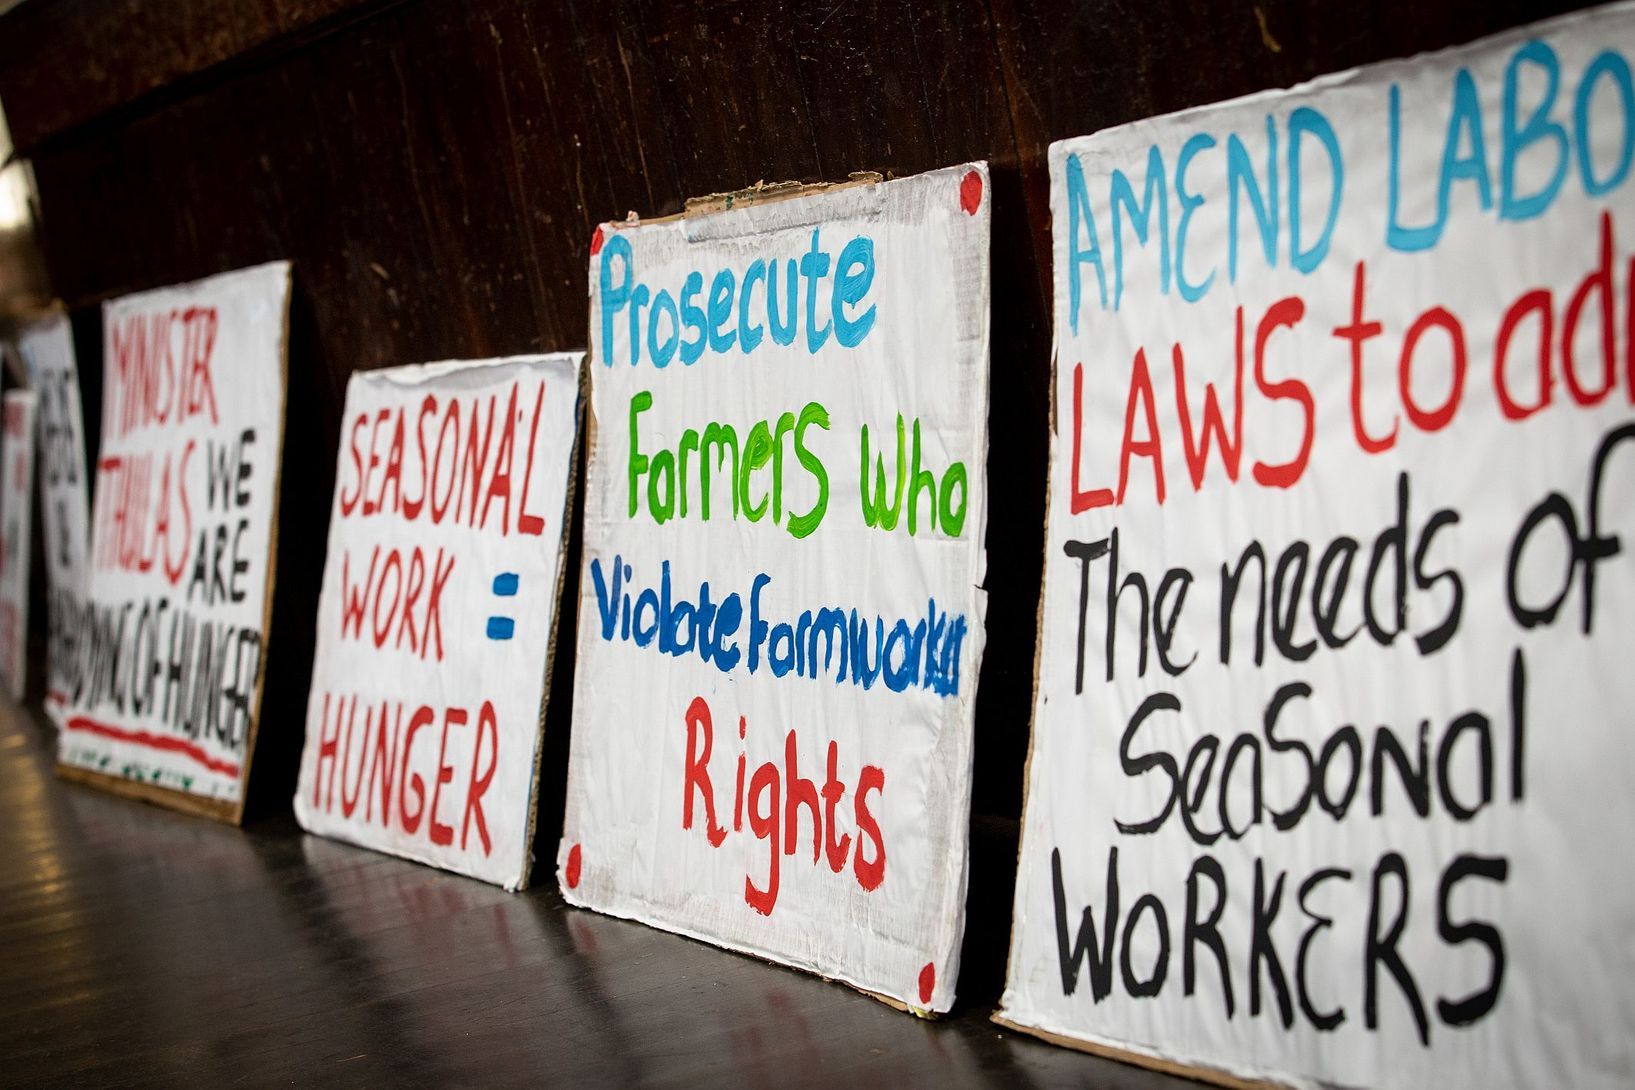 MINISTER
THULAS WE
ARE
DYING OF HUNGER
SEASONAL
WORK =
HUNGER
Prosecute
Farmers who
Violate Farmworker
Rights
AMEND LABO
LAWS to add
The needs of
Seasonal
WORKERS